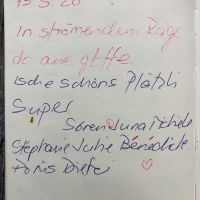 15.5.20
In strömendem Räge
da ane gloffe.
Ische schöns Plätzli
Super
Sören Luna Michele
Stéphanie Julie Bénédicte
Doris